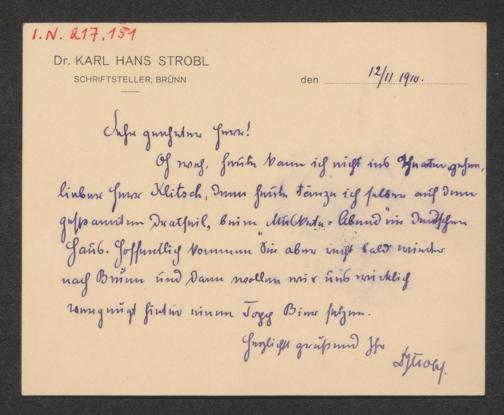 I.N. 217.151
Dr. KARL HANS STROBL
SCHRIFTSTELLER, BRÜNN
den 12/II 1910.
Sehr geehrter Herr!
Oh weh, heute kann ich nicht ins Theater gehen,
lieber Herr Klitsch, denn heute tanze ich selber auf dem
gespannten Drathseil, beim "Muskete-Abend" im Deutschen
Haus. Hoffentlich kommen Sie aber recht bald wieder
nach Brünn und dann wollen wir uns wirklich
vergnügt hinter einen Topp Bier setzen.
Herzlichst grüßend Ihr
Strobl.